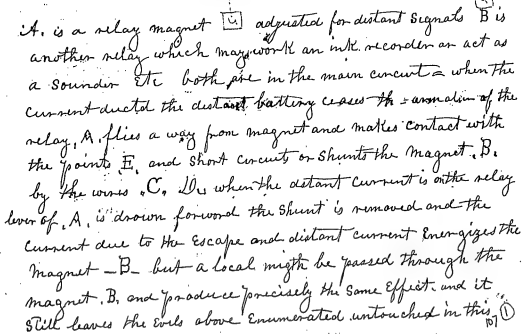 A. is a relay magnet [4] adjusted for distant Signals B is
another relay which may work an ink recorder or act as
a sounder Etc both are in the main circuit = when the
current ductd the distant battery ceases th armature of the
relay, A, flies a way from magnet and makes contact with
the points, E, and short circuits or Shunts the magnet, B,
by the wires, C. D, when the distant current is on the relay
lever of, A, is drawn forword the Shunt is removed and the
current due to the Escape and distant current Energizes the
magnet - B - but a local migth be passed through the
magnet, B, and produce precisely the same Effect. and it
Still leaves the Evels above Enumerated untouched in this
107 1